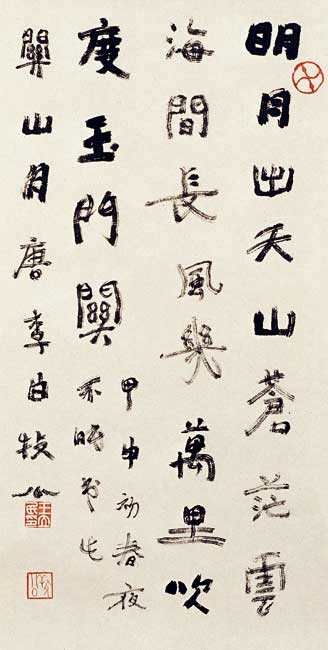 明月出天山蒼茫雲
海間長風幾萬里吹
度玉門關
甲申初春夜
不眠
關山月唐李白